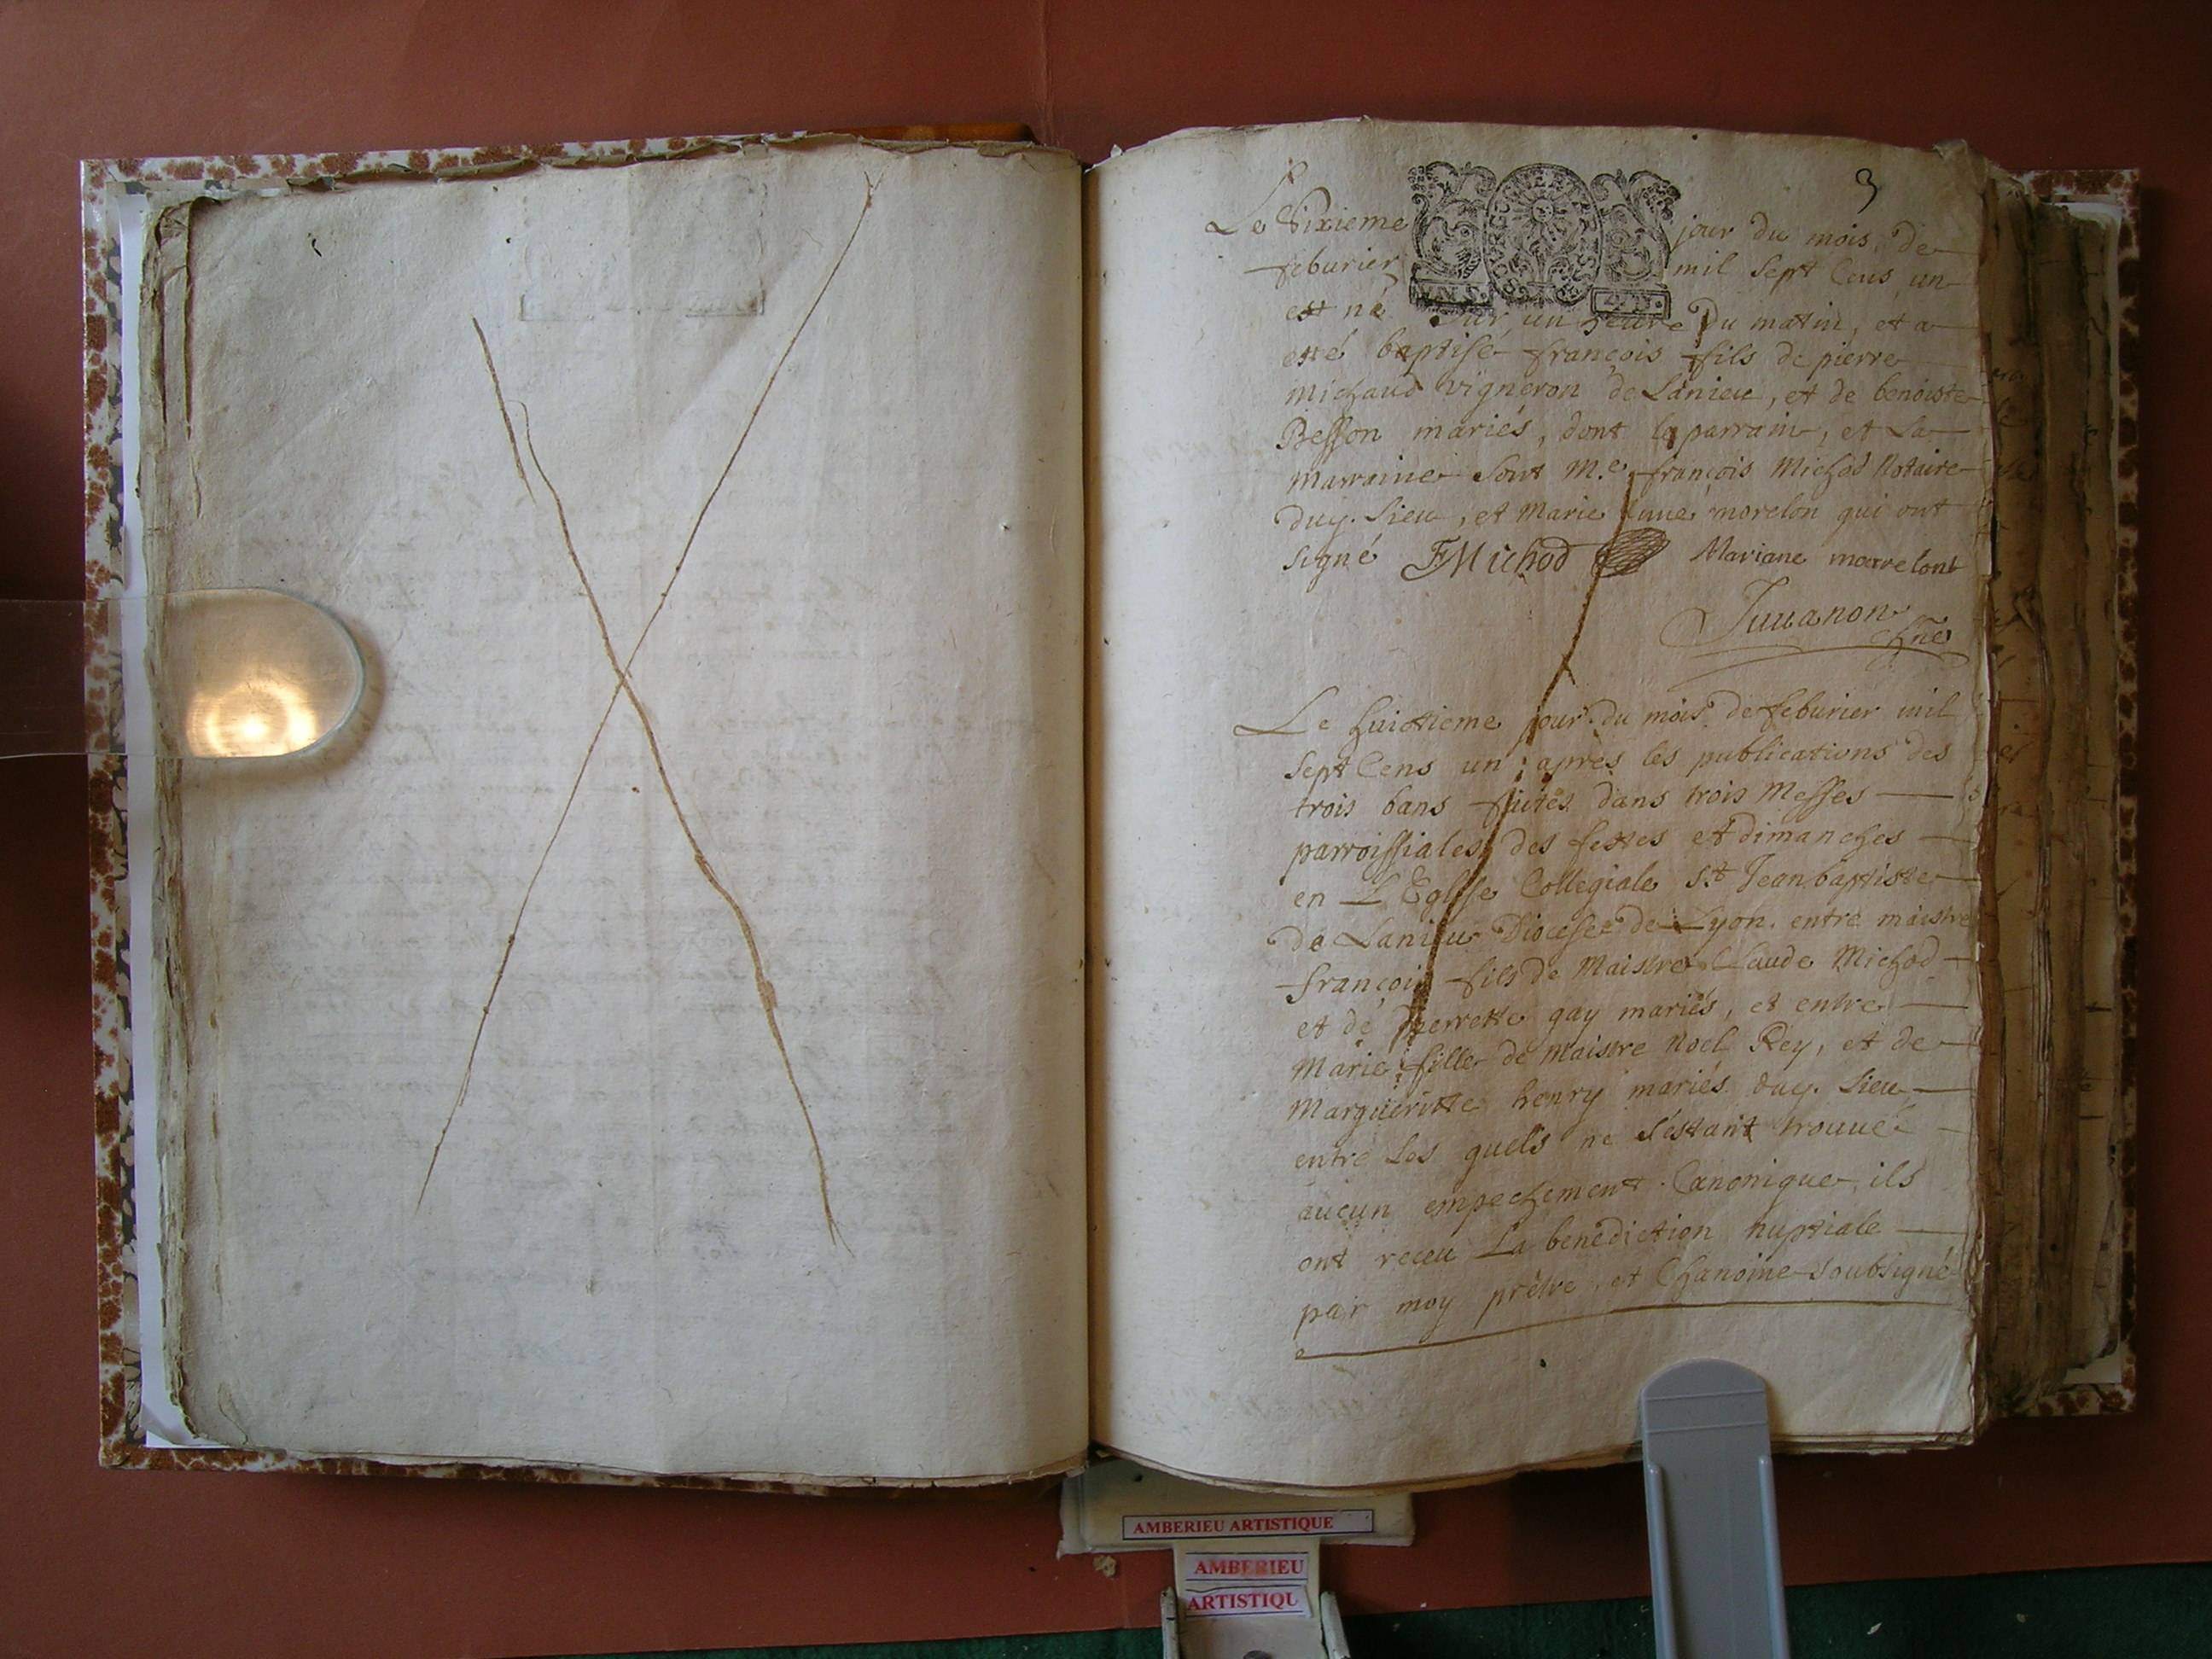 3
Le Sixieme jour du mois de
feburier mil Sept Cens un
est né sur un heure du matin, et a
esté baptisé françois fils de pierre
michaud vigneron de Lanieu, et de benoiste
Besson mariés, dont le parrain, et La
marraine Sont M.e françois Michod Notaire
duy. Lieu, et Marie Anne morelon qui ont
signé FMichod Mariane morrelont
Juuanon
Chne
Le huictieme jour du mois de feburier mil
Sept Cens un apres les publications des
trois bans faites dans trois Messes
parroissiales des festes et dimanches
en L'Eglise Collegiale St Jean baptiste
de Lanieu Diocese de Lyon. entre maistre
françois fils de Maistre Claude Michod
et de pierrette gay mariés, et entre
Marie fille de Maistre Noel Rey, et de
Margueritte henry mariés duy. Lieu
entre Les quels ne s'estant trouué
aucun empechement Canonique, ils
ont receu La benediction nuptiale
par moy prêtre, et Chanoine soubsigné
AMBERIEU ARTISTIQUE
AMBERIEU
ARTISTIQU